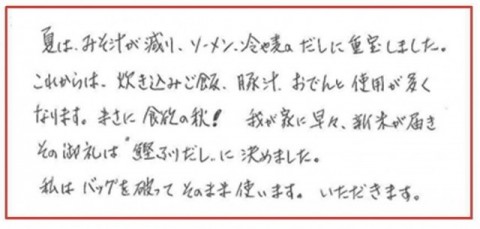 夏は、みそ汁が減り、ソーメン、冷や麦のだしに重宝しました。
これからは、炊き込みご飯、豚汁、おでんと使用が多く
なります。まさに食欲の秋！ 我が家に早々、新米が届き
その御礼は"鰹ふりだし"に決めました。
私はバッグを破ってそのまま使います。いただきます。